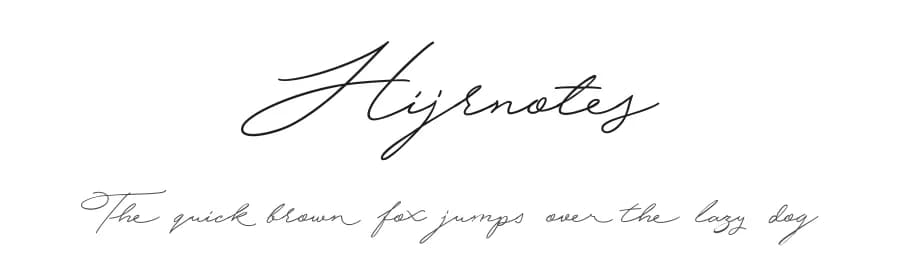 Hijrnotes
The quick brown fox jumps over the lazy dog